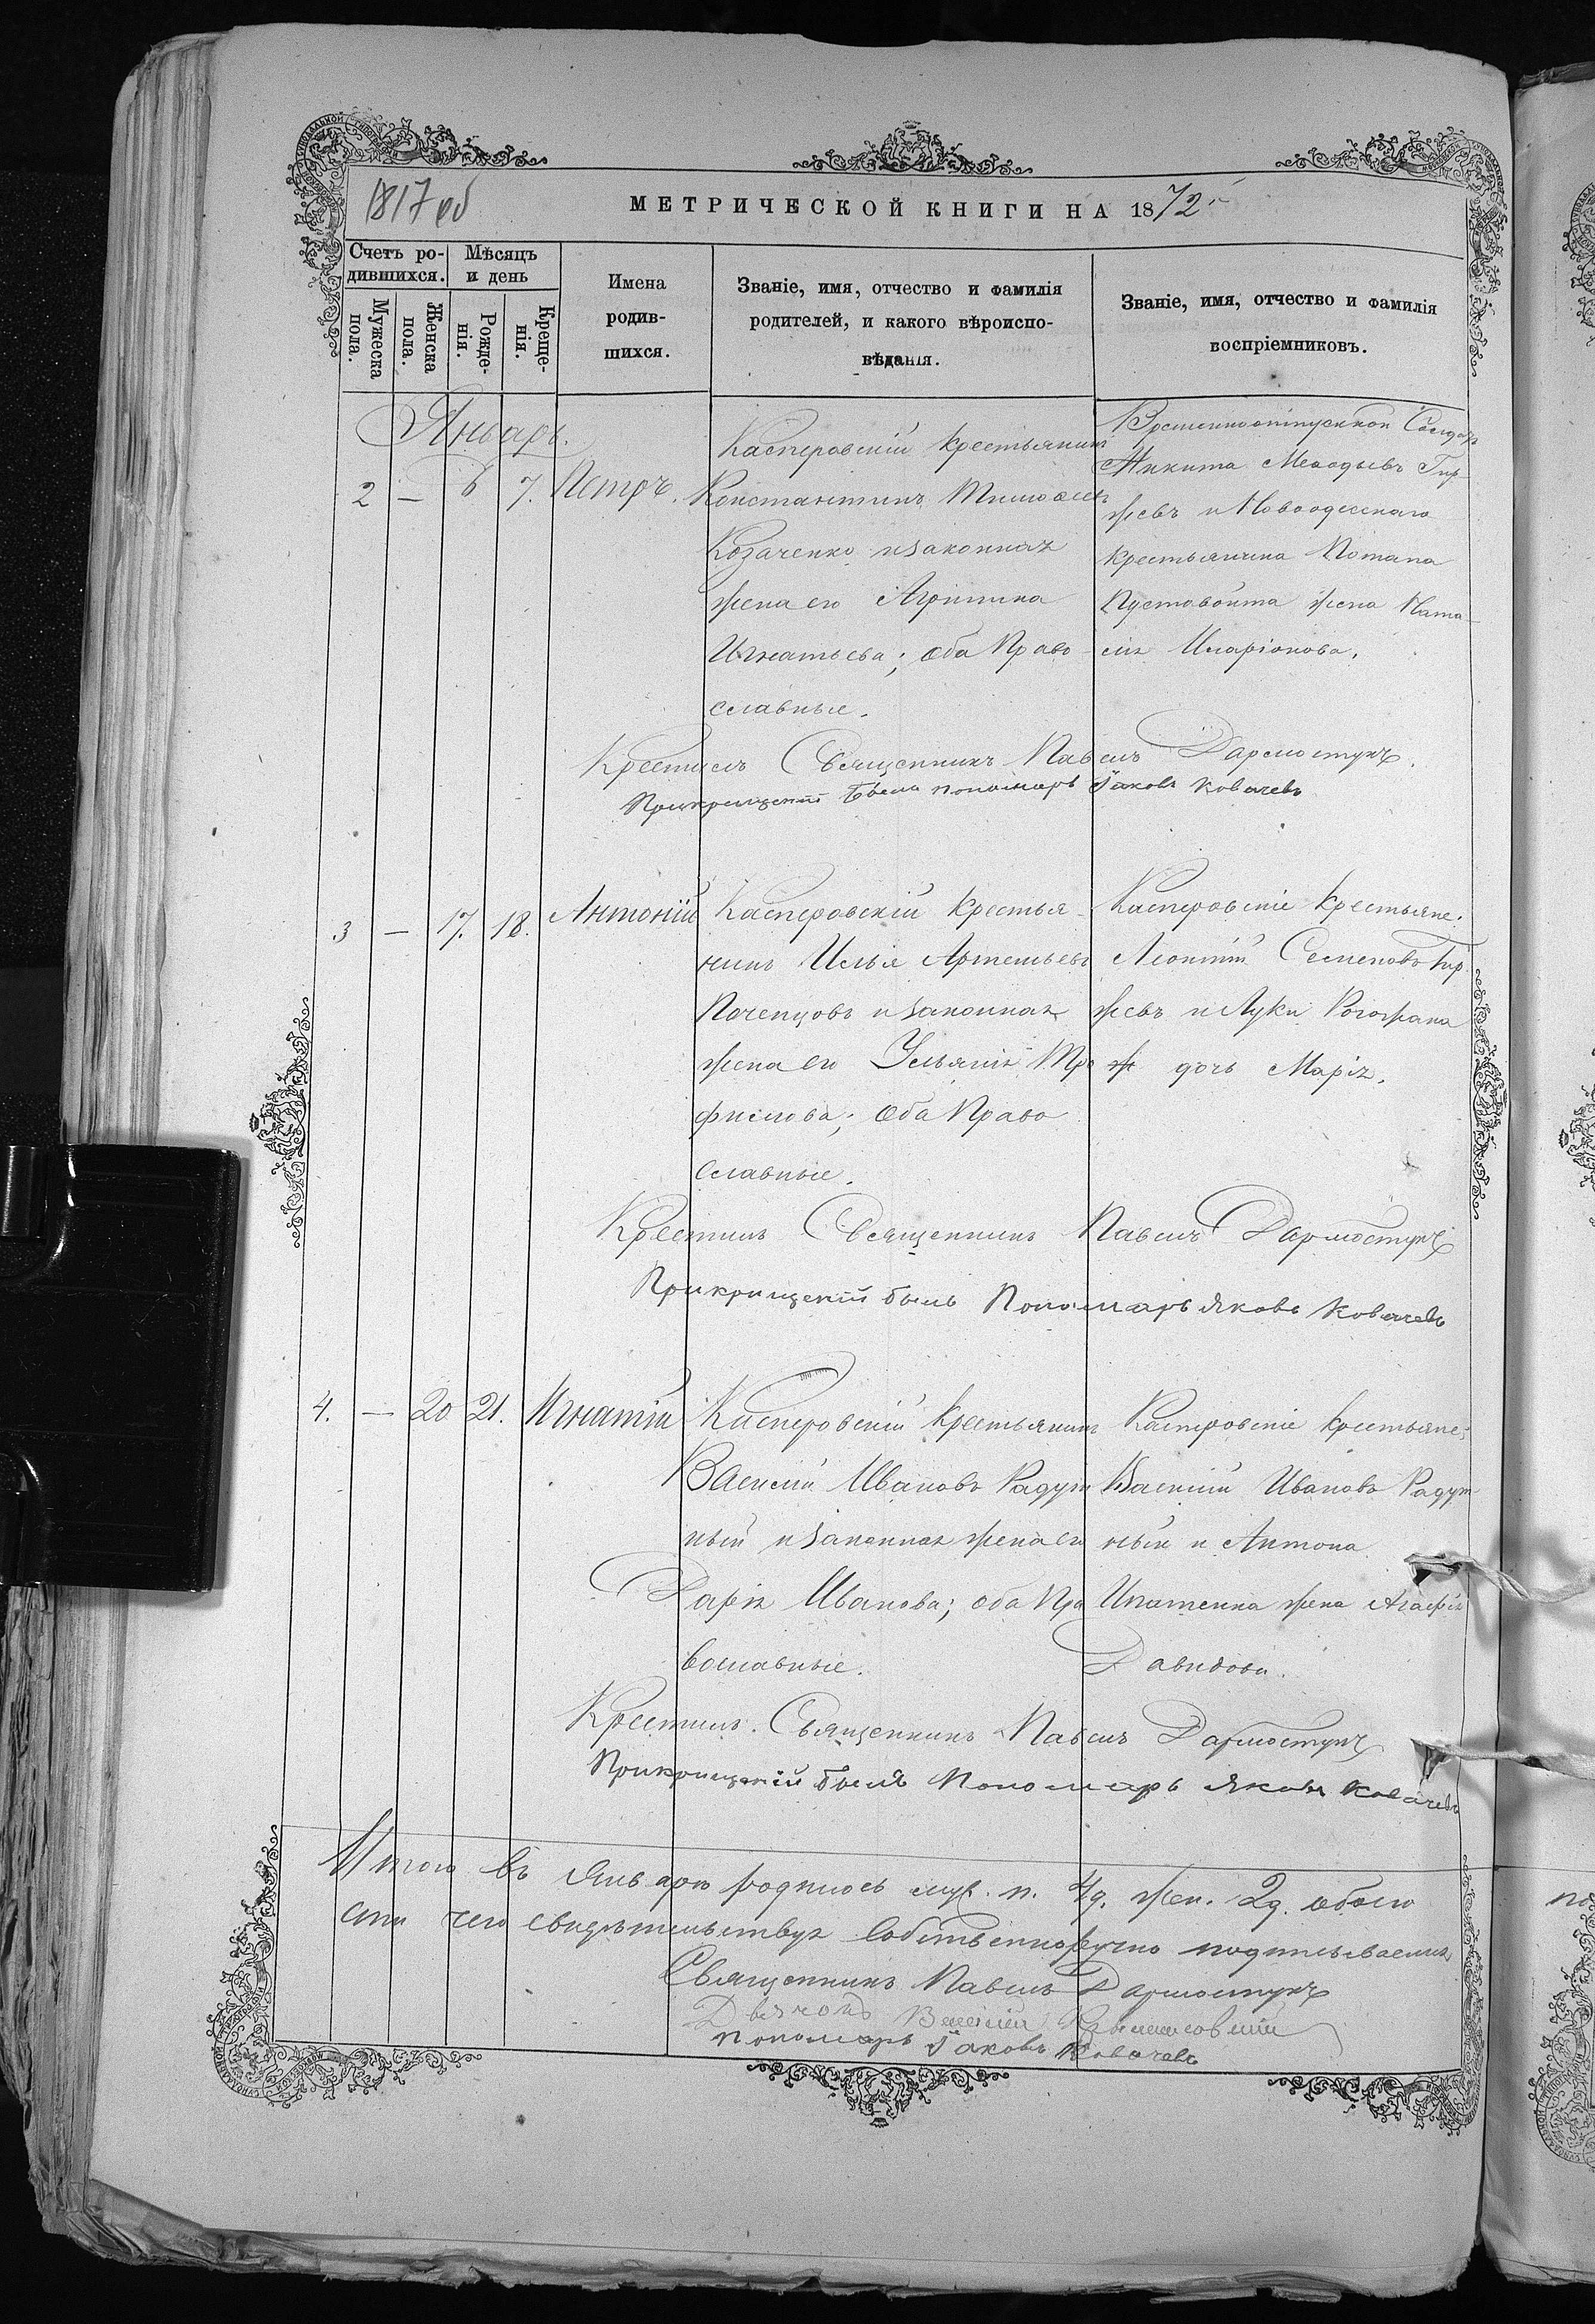 1817 об
МЕТРИЧЕСКОЙ КНИГИ НА 1872
Счетъ ро-
дившихся.
Мѣсяцъ
и день
Мужеска
пола.
Женска
пола.
Рожде-
нія.
Креще-
нія.
Имена
родив-
шихся.
Званіе, имя, отчество и фамилія
родителей, и какого вѣроиспо-
вѣданія.
Званіе, имя, отчество и фамилія
воспріемниковъ.
Январь.
2 — 6 7. Петръ.
Касперовскій крестьянинъ
Константинъ
Козаченко и законная
жена его Агрипина
Игнатьева; оба Право-
славные.
Временноотпускной Солдатъ
Никита Гир-
жевъ и Новоодесскаго
крестьянина Потапа
Пустовойта жена Ната-
лія Иларіонова.
Крестилъ Священникъ Павелъ Дармостукъ.
Прикрищеніи былъ пономаръ Іаковъ Ковачевъ
3 — 17. 18. Антоній
Касперовскій крестья-
нинъ Илья Артемьевъ
Поченцовъ и законная
жена его Ульянія Тро
фимова; оба Право
славные.
Касперовскіе крестьяне:
Леонтій Семеновъ Гир
жевъ и Луки Рогожана
дочь Марія.
Крестилъ Священникъ Павелъ Дармостукъ
Прикрищеніи былъ Пономаръ Яковъ Ковачевъ
4. — 20 21. Игнатій
Касперовскій крестьянинъ
Василій Ивановъ Радут
ный и законная жена его
Дарія Иванова; оба Пра
вославные.
Касперовскіе крестьяне:
Василій Ивановъ Радут-
ный и Антона
Игнатенка жена Агафія
Давидова.
Крестилъ Священникъ Павелъ Дармостукъ
Прикрищеніи былъ Пономаръ Яковъ Ковачевъ
Итого въ Январѣ родилось муж. п. 4д. жен. 2д. обоего
чего свидѣтельствуя собственноручно подписываемся
Священникъ Павелъ Дармостукъ
Дьячокъ Василій
пономаръ Іаковъ Ковачевъ